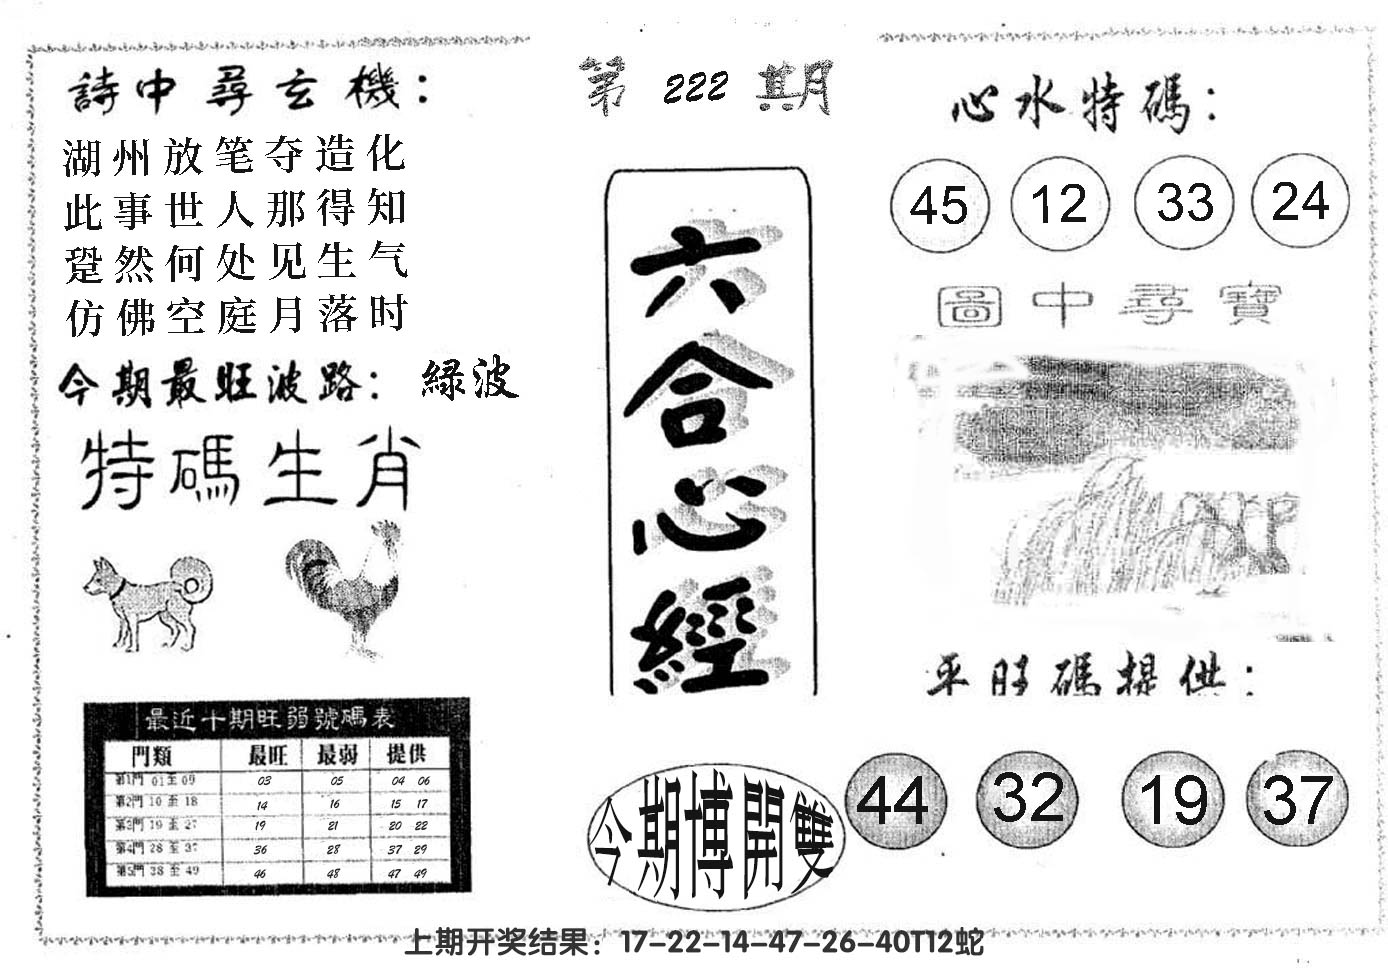 詩中尋玄機：
湖州放笔夺造化
此事世人那得知
跫然何处见生气
仿佛空庭月落时
今期最旺波路：綠波
特碼生肖
最近十期旺弱號碼表
門類 最旺 最弱 提供
第1門 01至09 03 05 04 06
第2門 10至18 14 16 15 17
第3門 19至27 19 21 20 22
第4門 28至37 36 28 37 29
第5門 38至49 46 48 47 49
第222期
六合心經
今期博開雙
心水特碼：
45 12 33 24
圖中尋寶
平旺碼提供：
44 32 19 37
上期开奖结果：17-22-14-47-26-40T12蛇